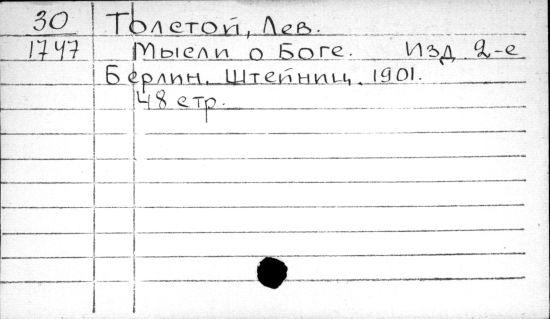 30 Толстой, Лев.
1747 Мысли о Боге. Изд. 2-е
Берлин. Штейниц. 1901.
48 стр.